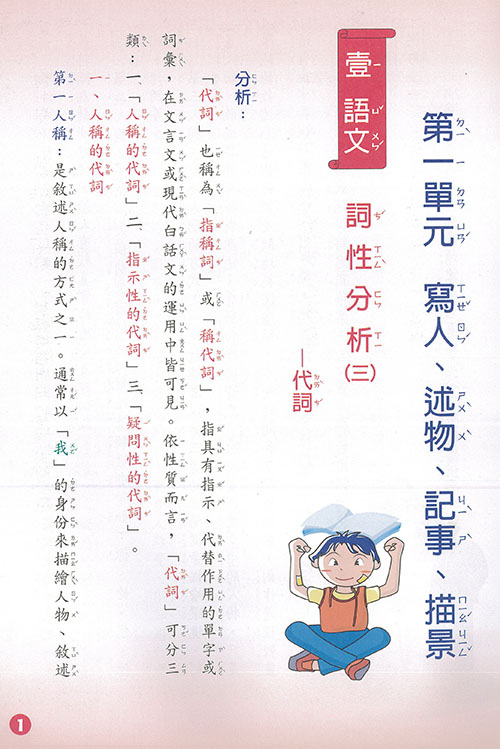 第一單元　寫人、述物、記事、描景
壹 語文
詞性分析(三)
—代詞
分析：
「代詞」也稱為「指稱詞」或「稱代詞」，指具有指示、代替作用的單字或
詞彙，在文言文或現代白話文的運用中皆可見。依性質而言，「代詞」可分三
類：一、「人稱的代詞」二、「指示性的代詞」三、「疑問性的代詞」。
一、人稱的代詞
第一人稱：是敘述人稱的方式之一。通常以「我」的身份來描繪人物、敘述
1